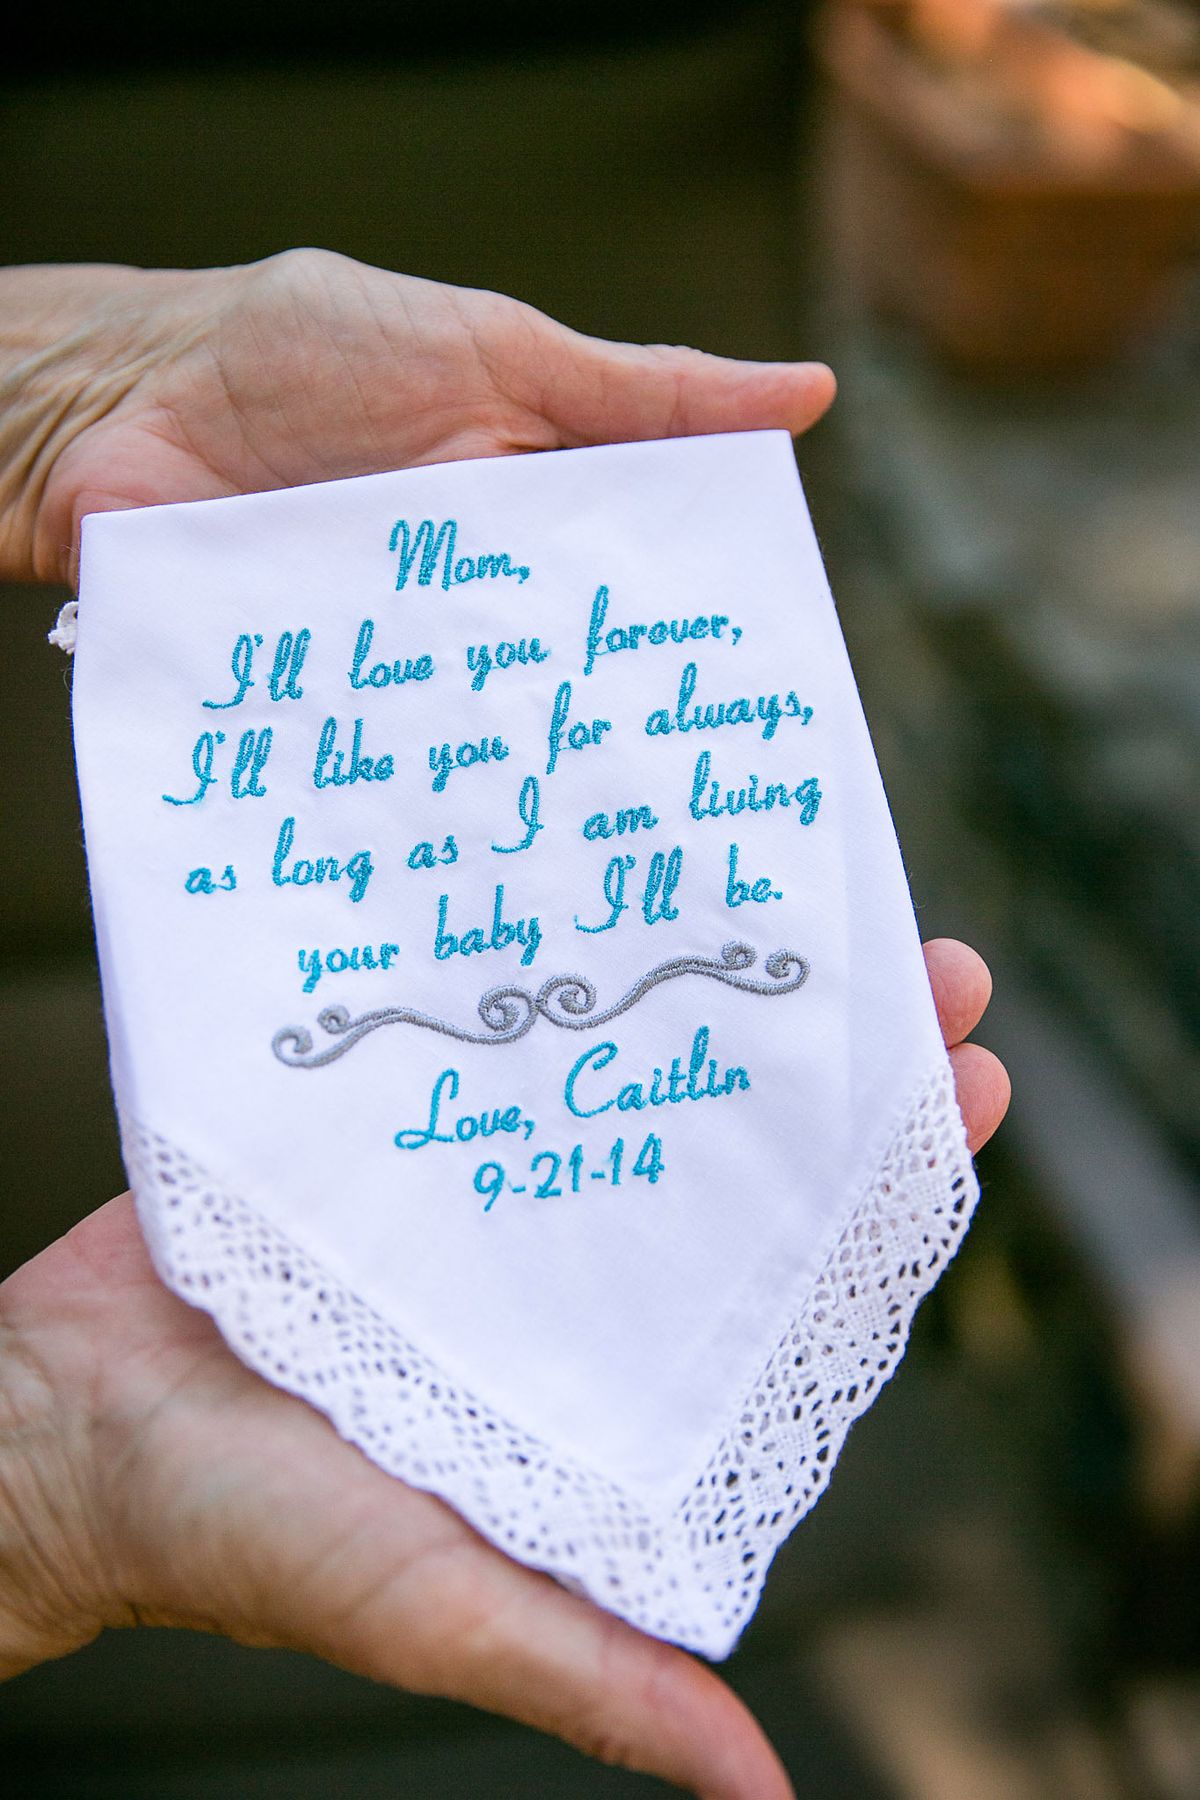 Mom,
I'll love you forever,
I'll like you for always,
as long as I am living
your baby I'll be.
Love, Caitlin
9-21-14